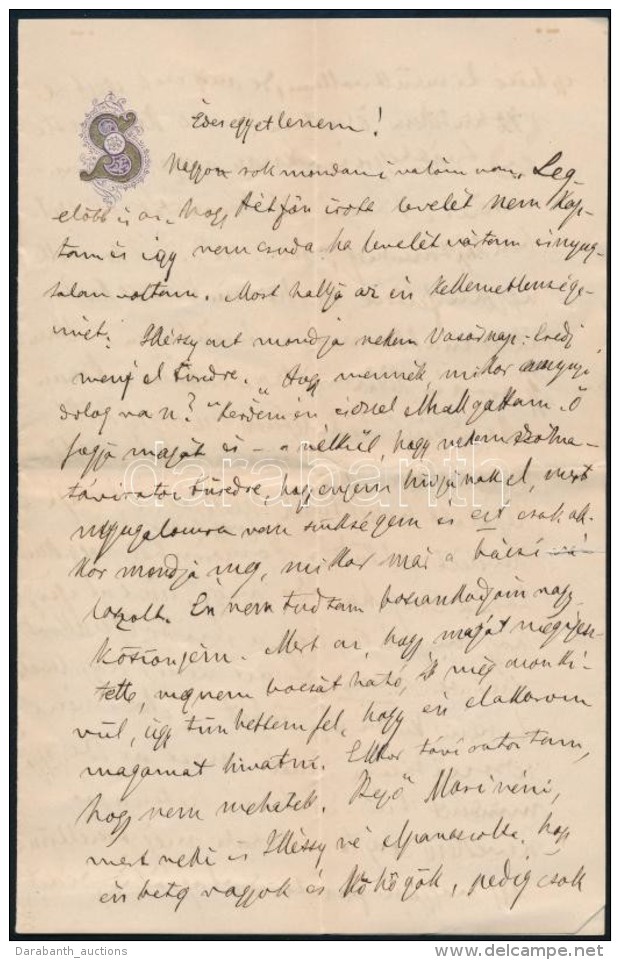 S
Édes egyetlenem!
Nagyon sok mondani valóm van. Leg-
előbb is az, hogy hétfőn írott levelét nem kap-
tam és így nem csoda ha levelét vártam és nyug-
talan voltam. Most hallja az én kellemetlensége-
imet: Illéssy azt mondja nekem Vasárnap: Eredj
menj el Füredre. "Hogy mennék, mikor annyi
dolog van?" Kérdem én és ezzel elhallgattam. Ő
fogja magát és – a nélkül, hogy nekem szólna –
táviratoz Füredre, hogy engem hívjanak el, mert
nyugalomra van szükségem és ezt csak ak-
kor mondja meg, mikor már a bácsi
toszolt. Én nem tudtam bosszankodjam vagy
köszönjem. Mert az, hogy magát megijesz-
tette, meg nem bocsátható, és még azonkí-
vül, úgy tűnhettem fel, hogy én akarom
magamat hivatni. Ekkor táviratoztam,
hogy nem mehetek. Bejő Mari néni,
mert neki is Illéssyné elpanaszolta, hogy
én beteg vagyok és köhögök, pedig csak
darabanth
Darabanth_auctions